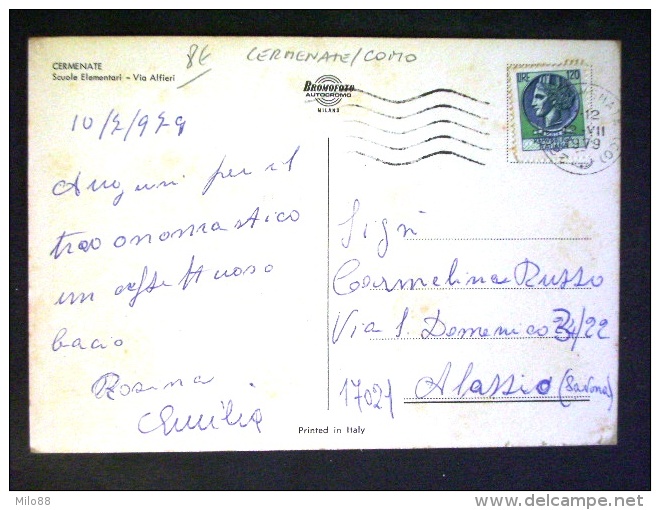 CERMENATE
Scuole Elementari - Via Alfieri
8€
CERMENATE/COMO
BROMOFOTO
AUTOCROMO
MILANO
LIRE 120
12
VII
1979
10/7/979
Auguri per il
tuo onomastico
un affettuoso
bacio
Rosina
Emilia
Sig.
Carmelina Russo
Via S. Domenico 34/22
17021 Alassio (Savona)
Printed in Italy
Milo88
www.delcampe.net